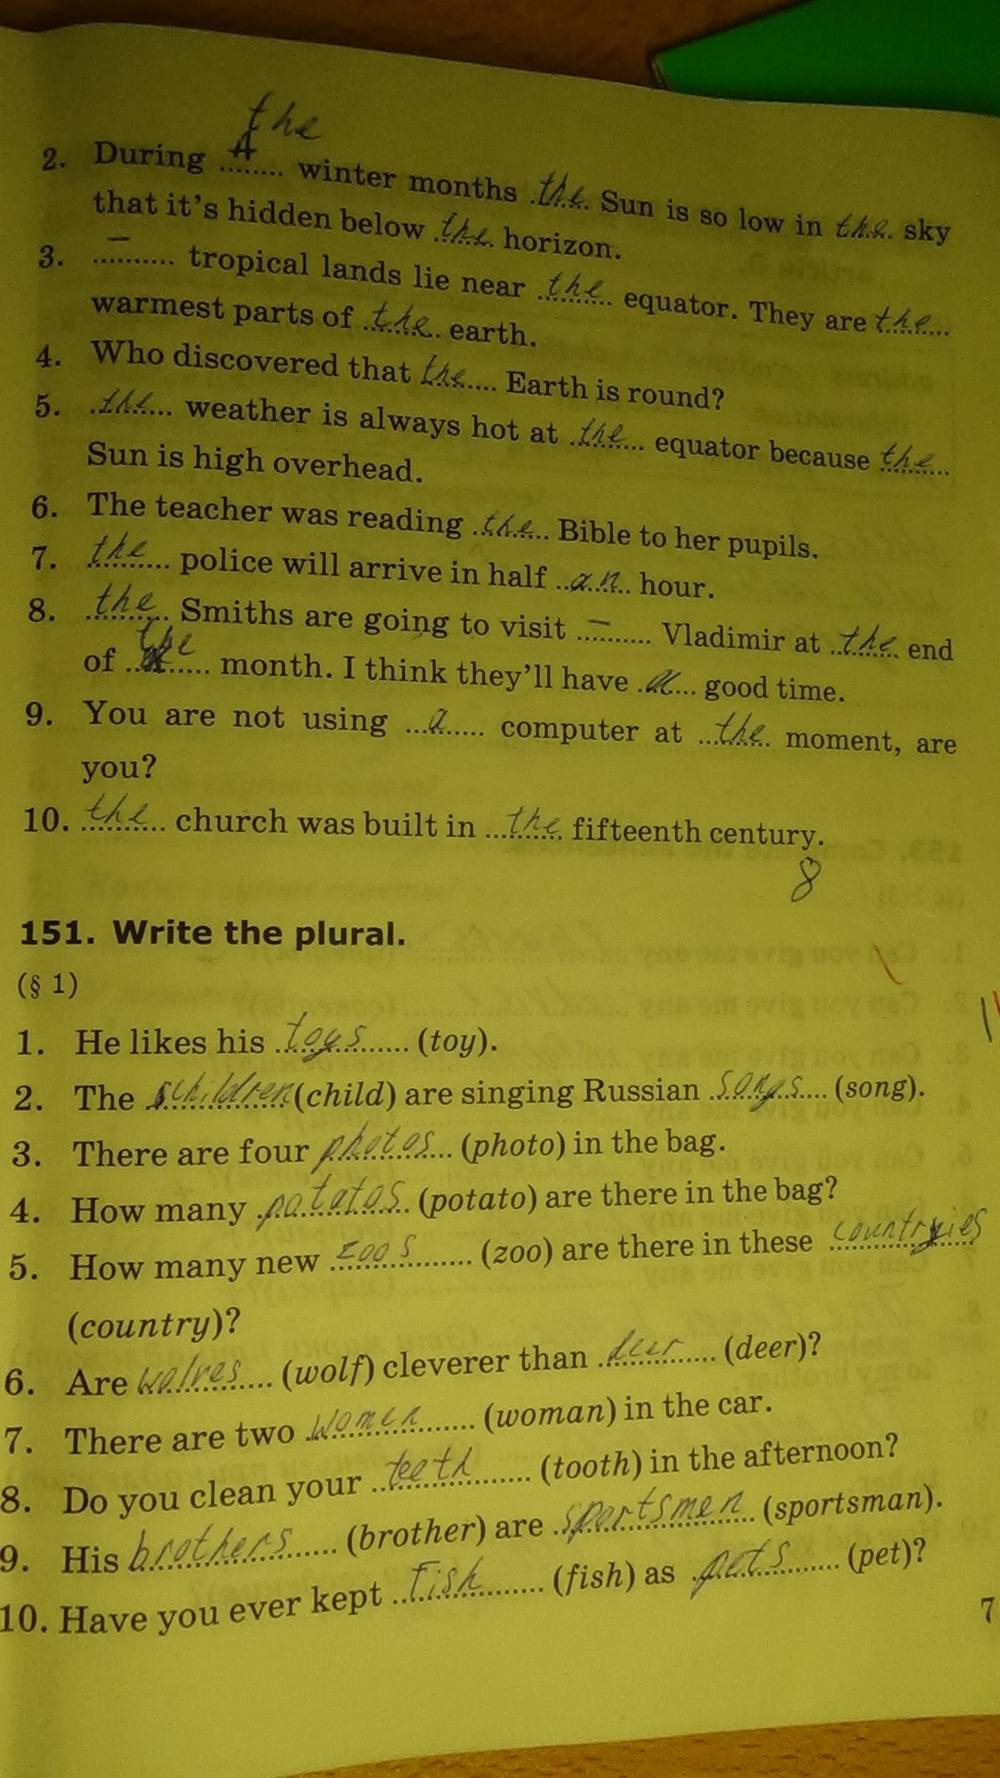 the
2. During A winter months the Sun is so low in the sky
that it's hidden below the horizon.
3. – tropical lands lie near the equator. They are the
warmest parts of the earth.
4. Who discovered that the Earth is round?
5. the weather is always hot at the equator because the
Sun is high overhead.
6. The teacher was reading the Bible to her pupils.
7. the police will arrive in half an hour.
8. the Smiths are going to visit – Vladimir at the end
of the month. I think they'll have a good time.
9. You are not using a computer at the moment, are
you?
10. the church was built in the fifteenth century.
8
151. Write the plural.
(§ 1)
1. He likes his toys (toy).
2. The children (child) are singing Russian songs (song).
3. There are four photos (photo) in the bag.
4. How many potatos (potato) are there in the bag?
5. How many new zoos (zoo) are there in these countries
(country)?
6. Are wolves (wolf) cleverer than deer (deer)?
7. There are two women (woman) in the car.
8. Do you clean your teeth (tooth) in the afternoon?
9. His brothers (brother) are sportsmen (sportsman).
10. Have you ever kept fish (fish) as pets (pet)?
7